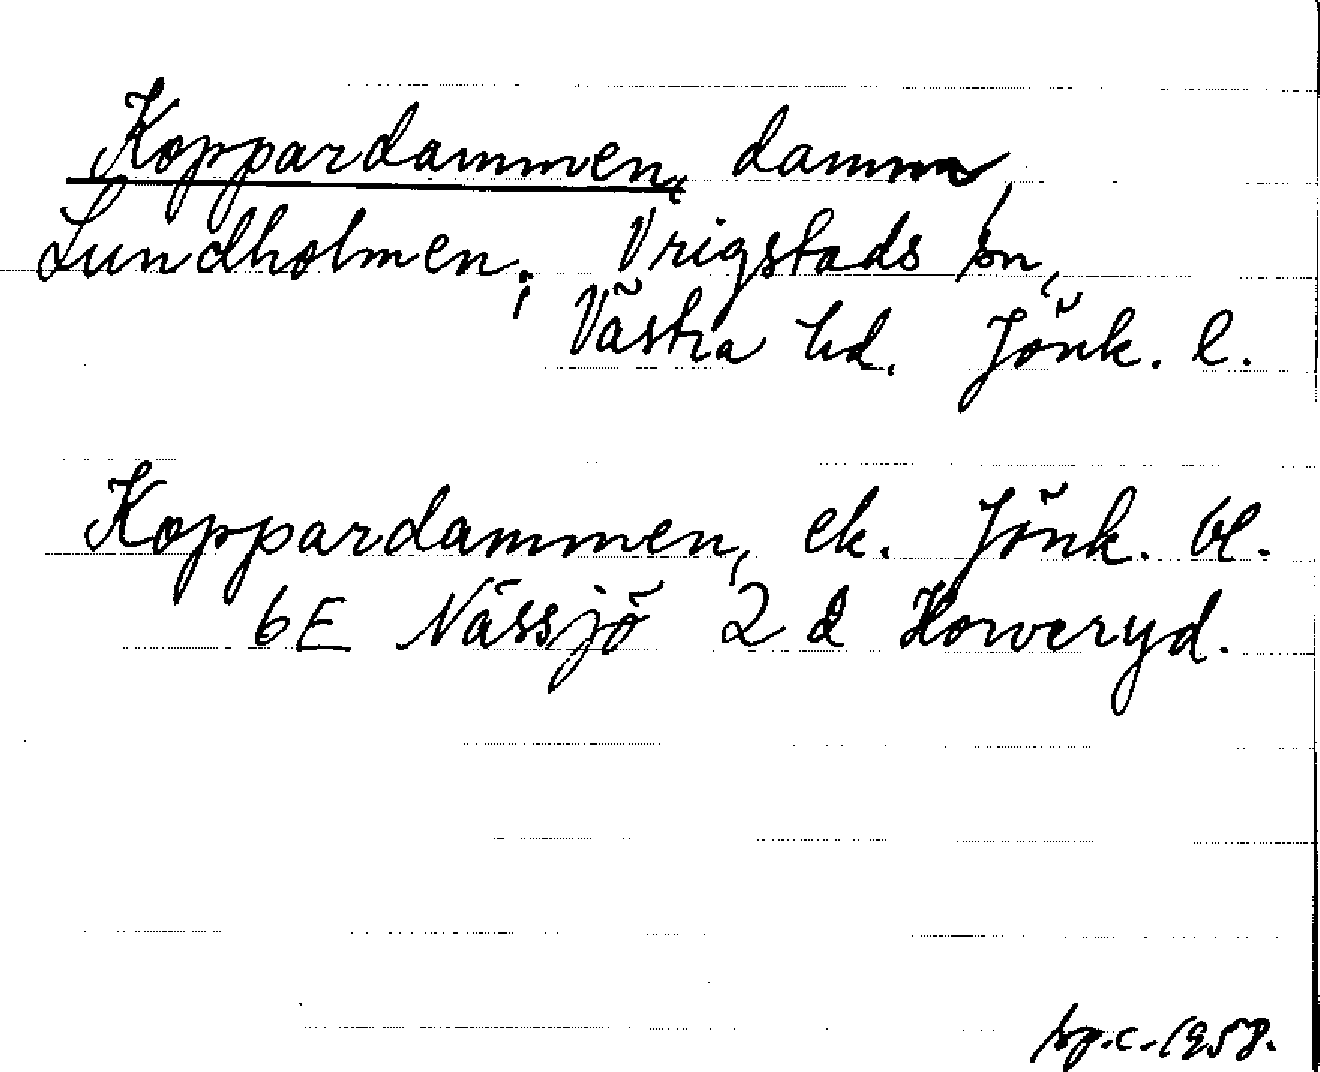 Koppardammen, damm,
Lundholmen; Vrigstads sn,
Västra hd. Jönk. l.
Koppardammen, ek. Jönk. bl.
6E Nässjö 2 d Howeryd.
1958.